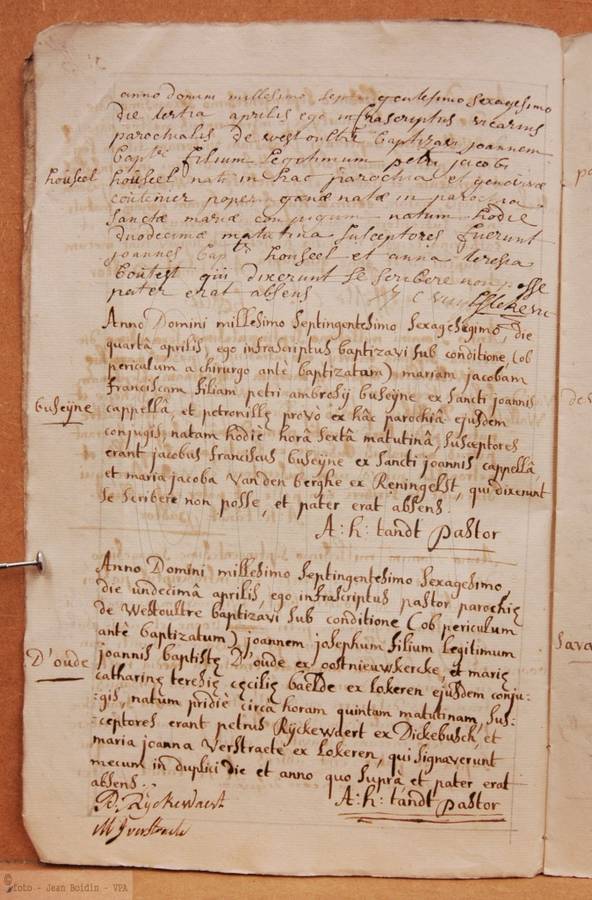 anno domini millesimo septin gentesimo sexagesimo
die tertia aprilis ego infrascriptus vicarius
parochialis de westoultre baptizavi joannem
bapte filium legitimum petri jacobi
houseel
houseel nati in hac parochia et genovivæ
coutenier poperinganæ natæ in parochia
sanctæ mariæ conjugum natum hodie
duodecima matutina susceptores fuerunt
joannes bapte houseel et anna teresia
qui dixerunt se scribere non posse
pater erat absens
Anno Domini millesimo septingentesimo sexagesimo, die
quartâ aprilis, ego infrascriptus baptizavi sub conditione, (ob
periculum a chirurgo antè baptizatam) mariam jacobam
franciscam filiam petri ambrosij buseÿne ex sancti joannis
buseÿne
cappellâ, et petronillę provo ex hâc parochiâ ejusdem
conjugis, natam hodiè horâ sextâ matutinâ, susceptores
erant jacobus franciscus buseÿne ex sancti joannis cappellâ
et maria jacoba Vanden berghe ex Reningelst, qui dixerunt
se scribere non posse, et pater erat absens.
A: h: tandt pastor
Anno Domini millesimo septingentesimo sexagesimo,
die undecimâ aprilis, ego infrascriptus pastor parochię
de Westoultre baptizavi sub conditione (ob periculum
antè baptizatum) joannem josephum filium legitimum
D'oude
joannis baptistę D'oude ex oostnieuwkercke, et marię
catharinę teresię cęcilię baelde ex Lokeren ejusdem conju-
:gis, natum pridiè circà horam quintam matutinam, sus=
:ceptores erant petrus Rÿckewaert ex Dickebusch, et
maria joanna Verstraete ex Lokeren, qui signaverunt
mecum in duplici die et anno quo suprà et pater erat
absens.
A: h: tandt pastor
P. Rÿckewaert
M J verstraete
©foto - Jean Boidin - VPA